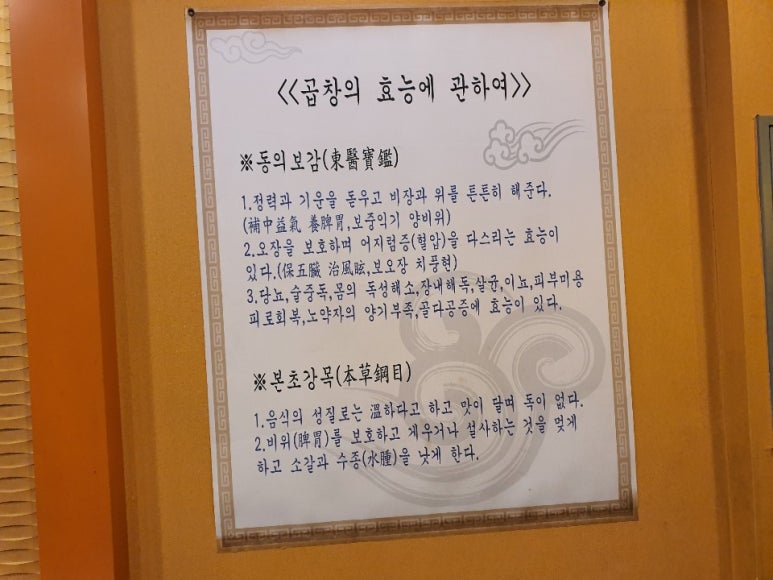 <<곱창의 효능에 관하여>>
※동의보감(東醫寶鑑)
1.정력과 기운을 돋우고 비장과 위를 튼튼히 해준다.
(補中益氣 養脾胃,보중익기 양비위)
2.오장을 보호하며 어지럼증(혈압)을 다스리는 효능이
있다.(保五臟 治風眩,보오장 치풍현)
3.당뇨,술중독,몸의 독성해소,장내해독,살균,이뇨,피부미용
피로회복,노약자의 양기부족,골다공증에 효능이 있다.
※본초강목(本草鋼目)
1.음식의 성질로는 溫하다고 하고 맛이 달며 독이 없다.
2.비위(脾胃)를 보호하고 게우거나 설사하는 것을 멎게
하고 소갈과 수종(水腫)을 낫게 한다.